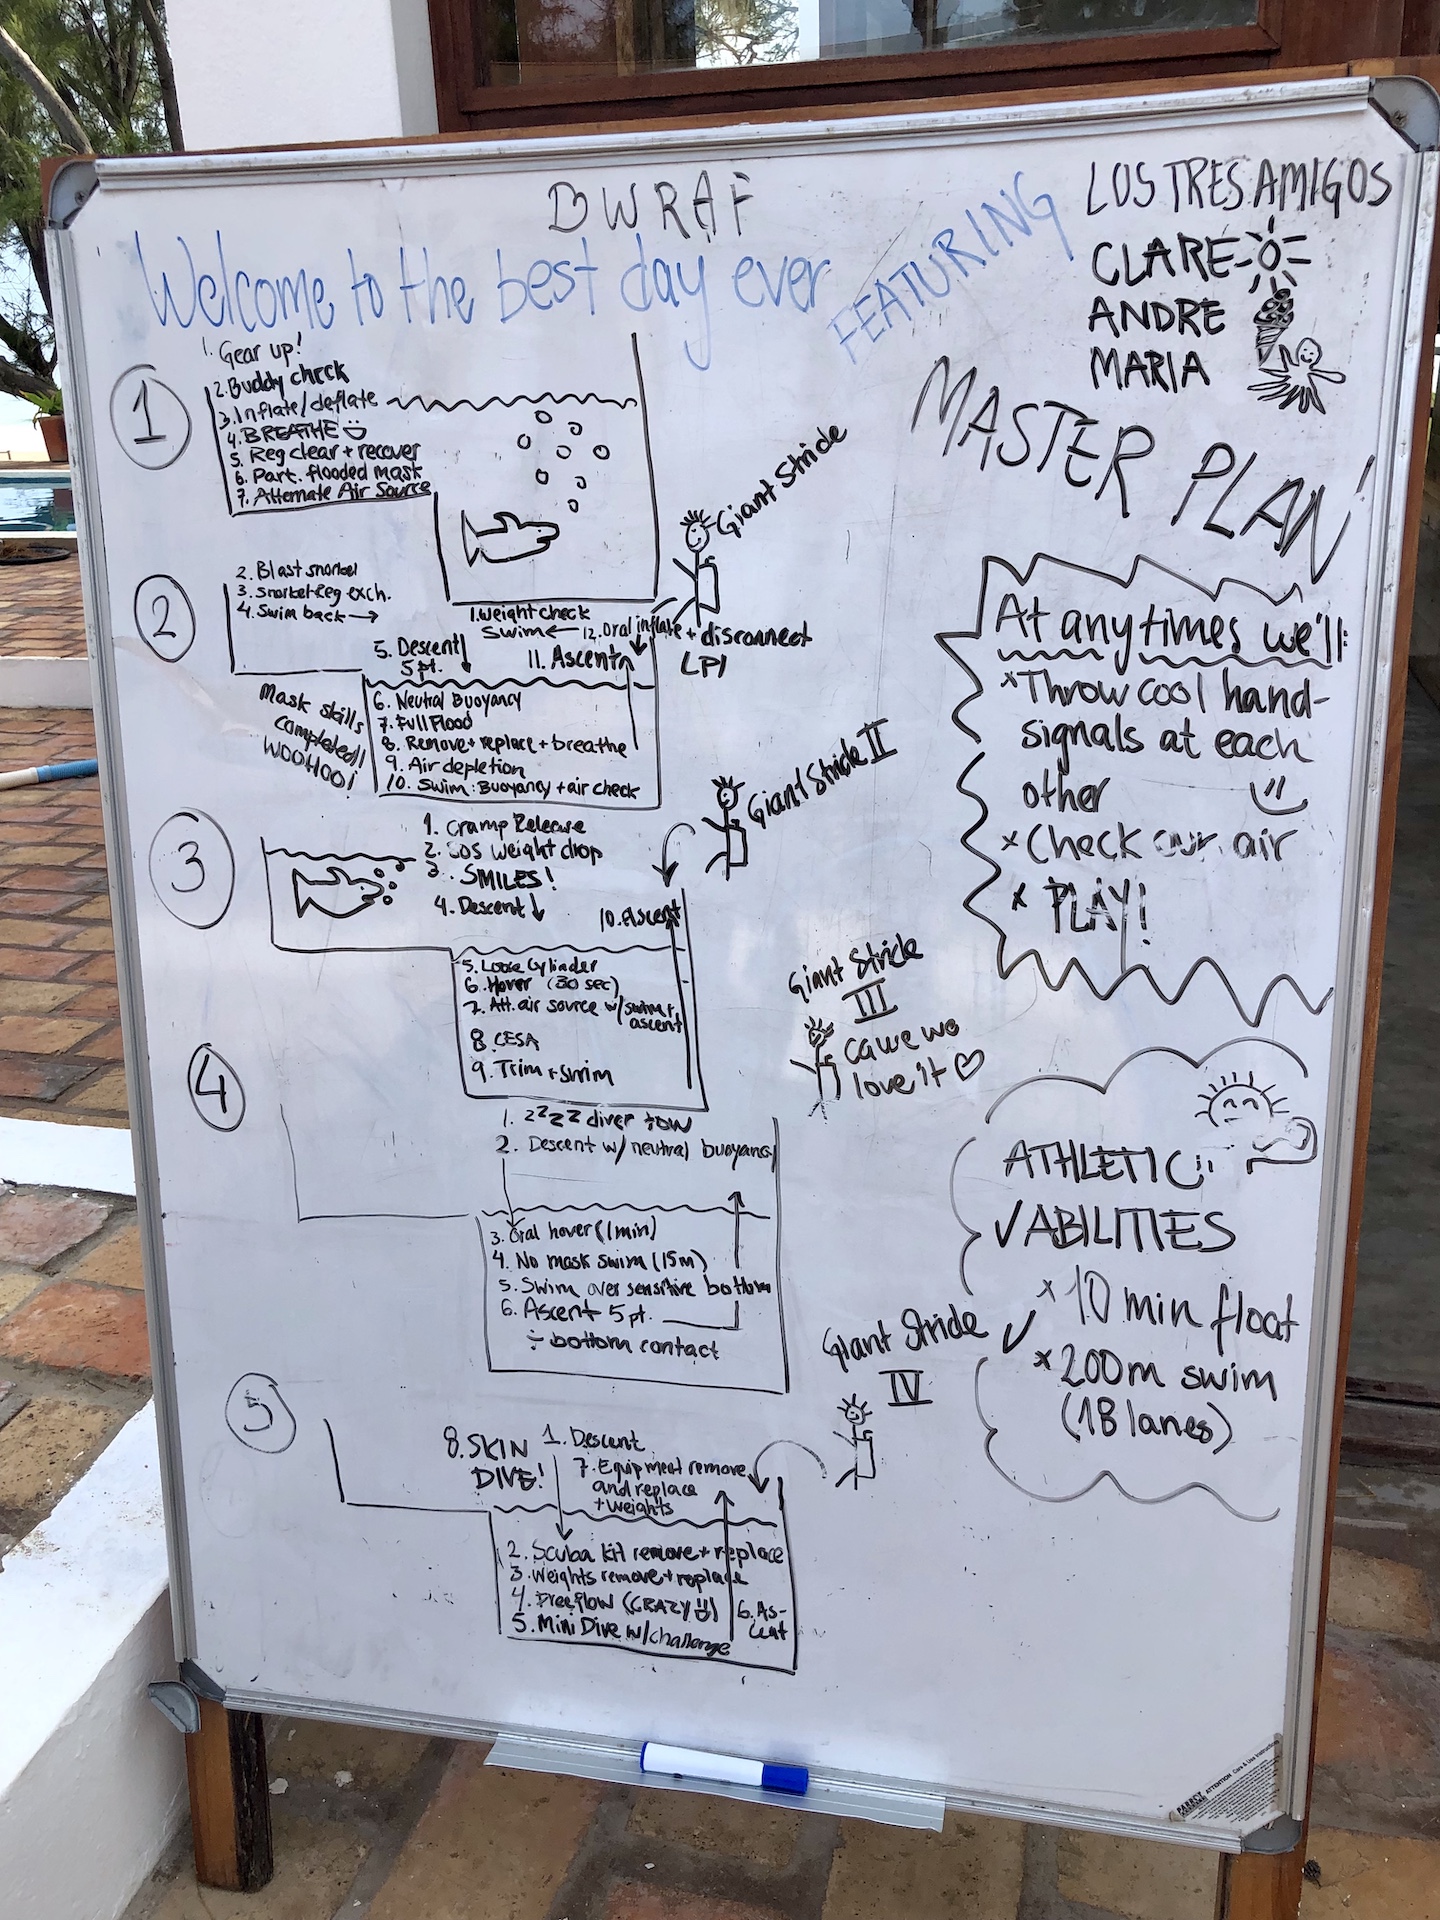 BWRAF
Welcome to the best day ever
FEATURING
LOS TRES AMIGOS
CLARE
ANDRE
MARIA
MASTER PLAN
1
1. Gear up!
2. Buddy check
3. Inflate/deflate
4. BREATHE
5. Reg clear + recover
6. Part. flooded mask
7. Alternate Air Source
Giant Stride
2
2. Blast snorkel
3. Snorkel-Reg exch.
4. Swim back →
1. Weight check
Swim ← 12. Oral inflate + disconnect
LPI
5. Descent ↓
5 pt.
11. Ascent
6. Neutral Buoyancy
7. Full Flood
8. Remove + replace + breathe
9. Air depletion
10. Swim: Buoyancy + air check
Mask skills
completed!!
WOOHOO!
Giant Stride II
3
1. Cramp Release
2. SOS weight drop
3. SMILES!
4. Descent ↓
10. Ascent
5. Loose Cylinder
6. Hover (30 sec)
7. Alt. air source w/ swim +
ascent
8 CESA
9. Trim + swim
Giant Stride
III
cause we
love it ♡
4
1. zzzz diver tow
2. Descent w/ neutral buoyancy
3. Oral hover (1min)
4. No mask swim (15m)
5. Swim over sensitive bottom
6. Ascent 5 pt.
÷ bottom contact
Giant Stride
IV
5
8. SKIN
DIVE!
1. Descent
7. Equipment remove
and replace
+ weights
2. Scuba kit remove + replace
3. Weights remove + replace
4. Freeflow (CRAZY)
5. Mini Dive w/challenge
6. As-
cent
At any times we'll:
x Throw cool hand-
signals at each
other
x Check our air
x PLAY!
ATHLETIC
✓ ABILITIES
x 10 min float
✓ x 200m swim
(18 lanes)
PARROT ATTENTION Care & Use Instructions